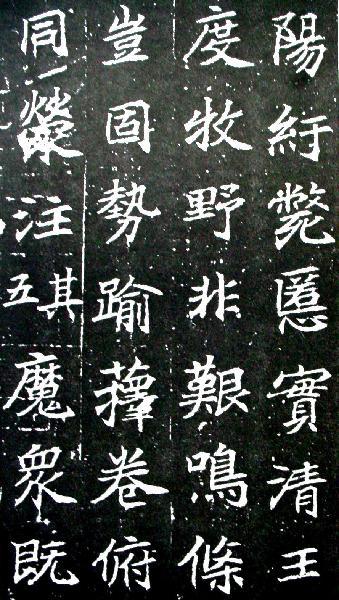 陽紆斃慝實清王
度牧野非艱鳴條
豈固勢踰蘀卷俯
同滎注其五魔眾既